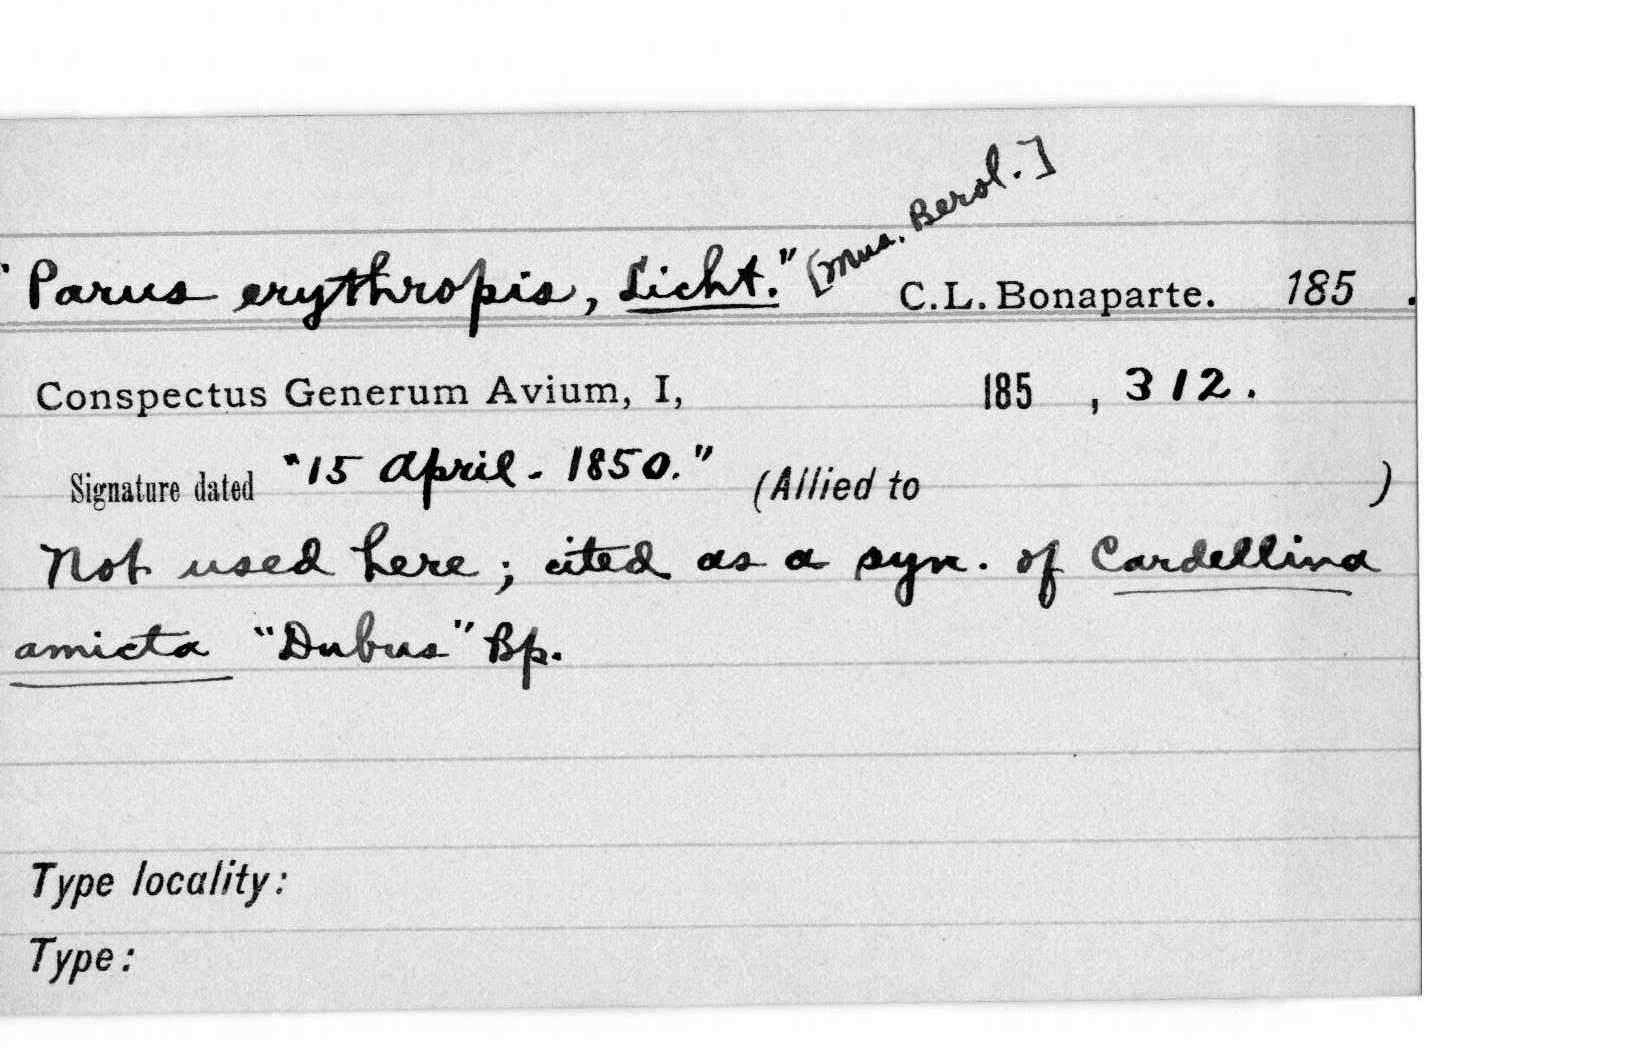 "Parus erythropis, Licht." [Mus. Berol.] C.L. Bonaparte. 185 .
Conspectus Generum Avium, I, 185 , 312.
Signature dated "15 April - 1850." (Allied to )
Not used here; cited as a syn. of Cardellina
amicta "Dubus" Bp.
Type locality:
Type: